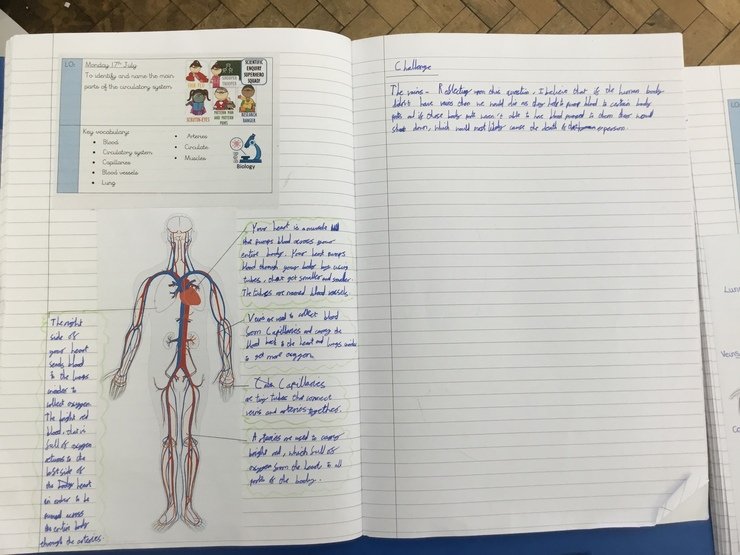 LO:
Monday 17th July
To identify and name the main
parts of the circulatory system
SCIENTIFIC
ENQUIRY
SUPERHERO
SQUAD!
RESEARCH
RANGER
Key vocabulary:
Blood
Circulatory system
Capillaries
Blood vessels
Lung
Arteries
Circulate
Muscles
Biology
Your heart is a muscle
that pumps blood across your
entire body. Your heart pumps
blood through your body by using
tubes, that get smaller and smaller.
The tubes are named blood vessels.
Veins are used to collect blood
from Capillaries and carry the
blood back to the heart and lungs
to get more oxygen.
Capillaries
are tiny tubes that connect
veins and arteries together.
Arteries are used to carry
bright red, which full of
oxygen from the heart to all
parts of the body.
The right
side of
your heart
sends blood
to the lungs
inorder to
collect oxygen.
The bright red
blood, that is
full of oxygen
returns to the
left side of
the heart
in order to be
pumped across
the entire body
through the arteries.
Challenge
The veins - Reflecting upon this question, I believe that if the human body
didn't have veins then we would die as they help to pump blood to certain body
parts and if those body parts weren't able to have blood pumped to them they would
shut down, which would most likely cause the death of a person.
LO
Lun
Veins
Ca